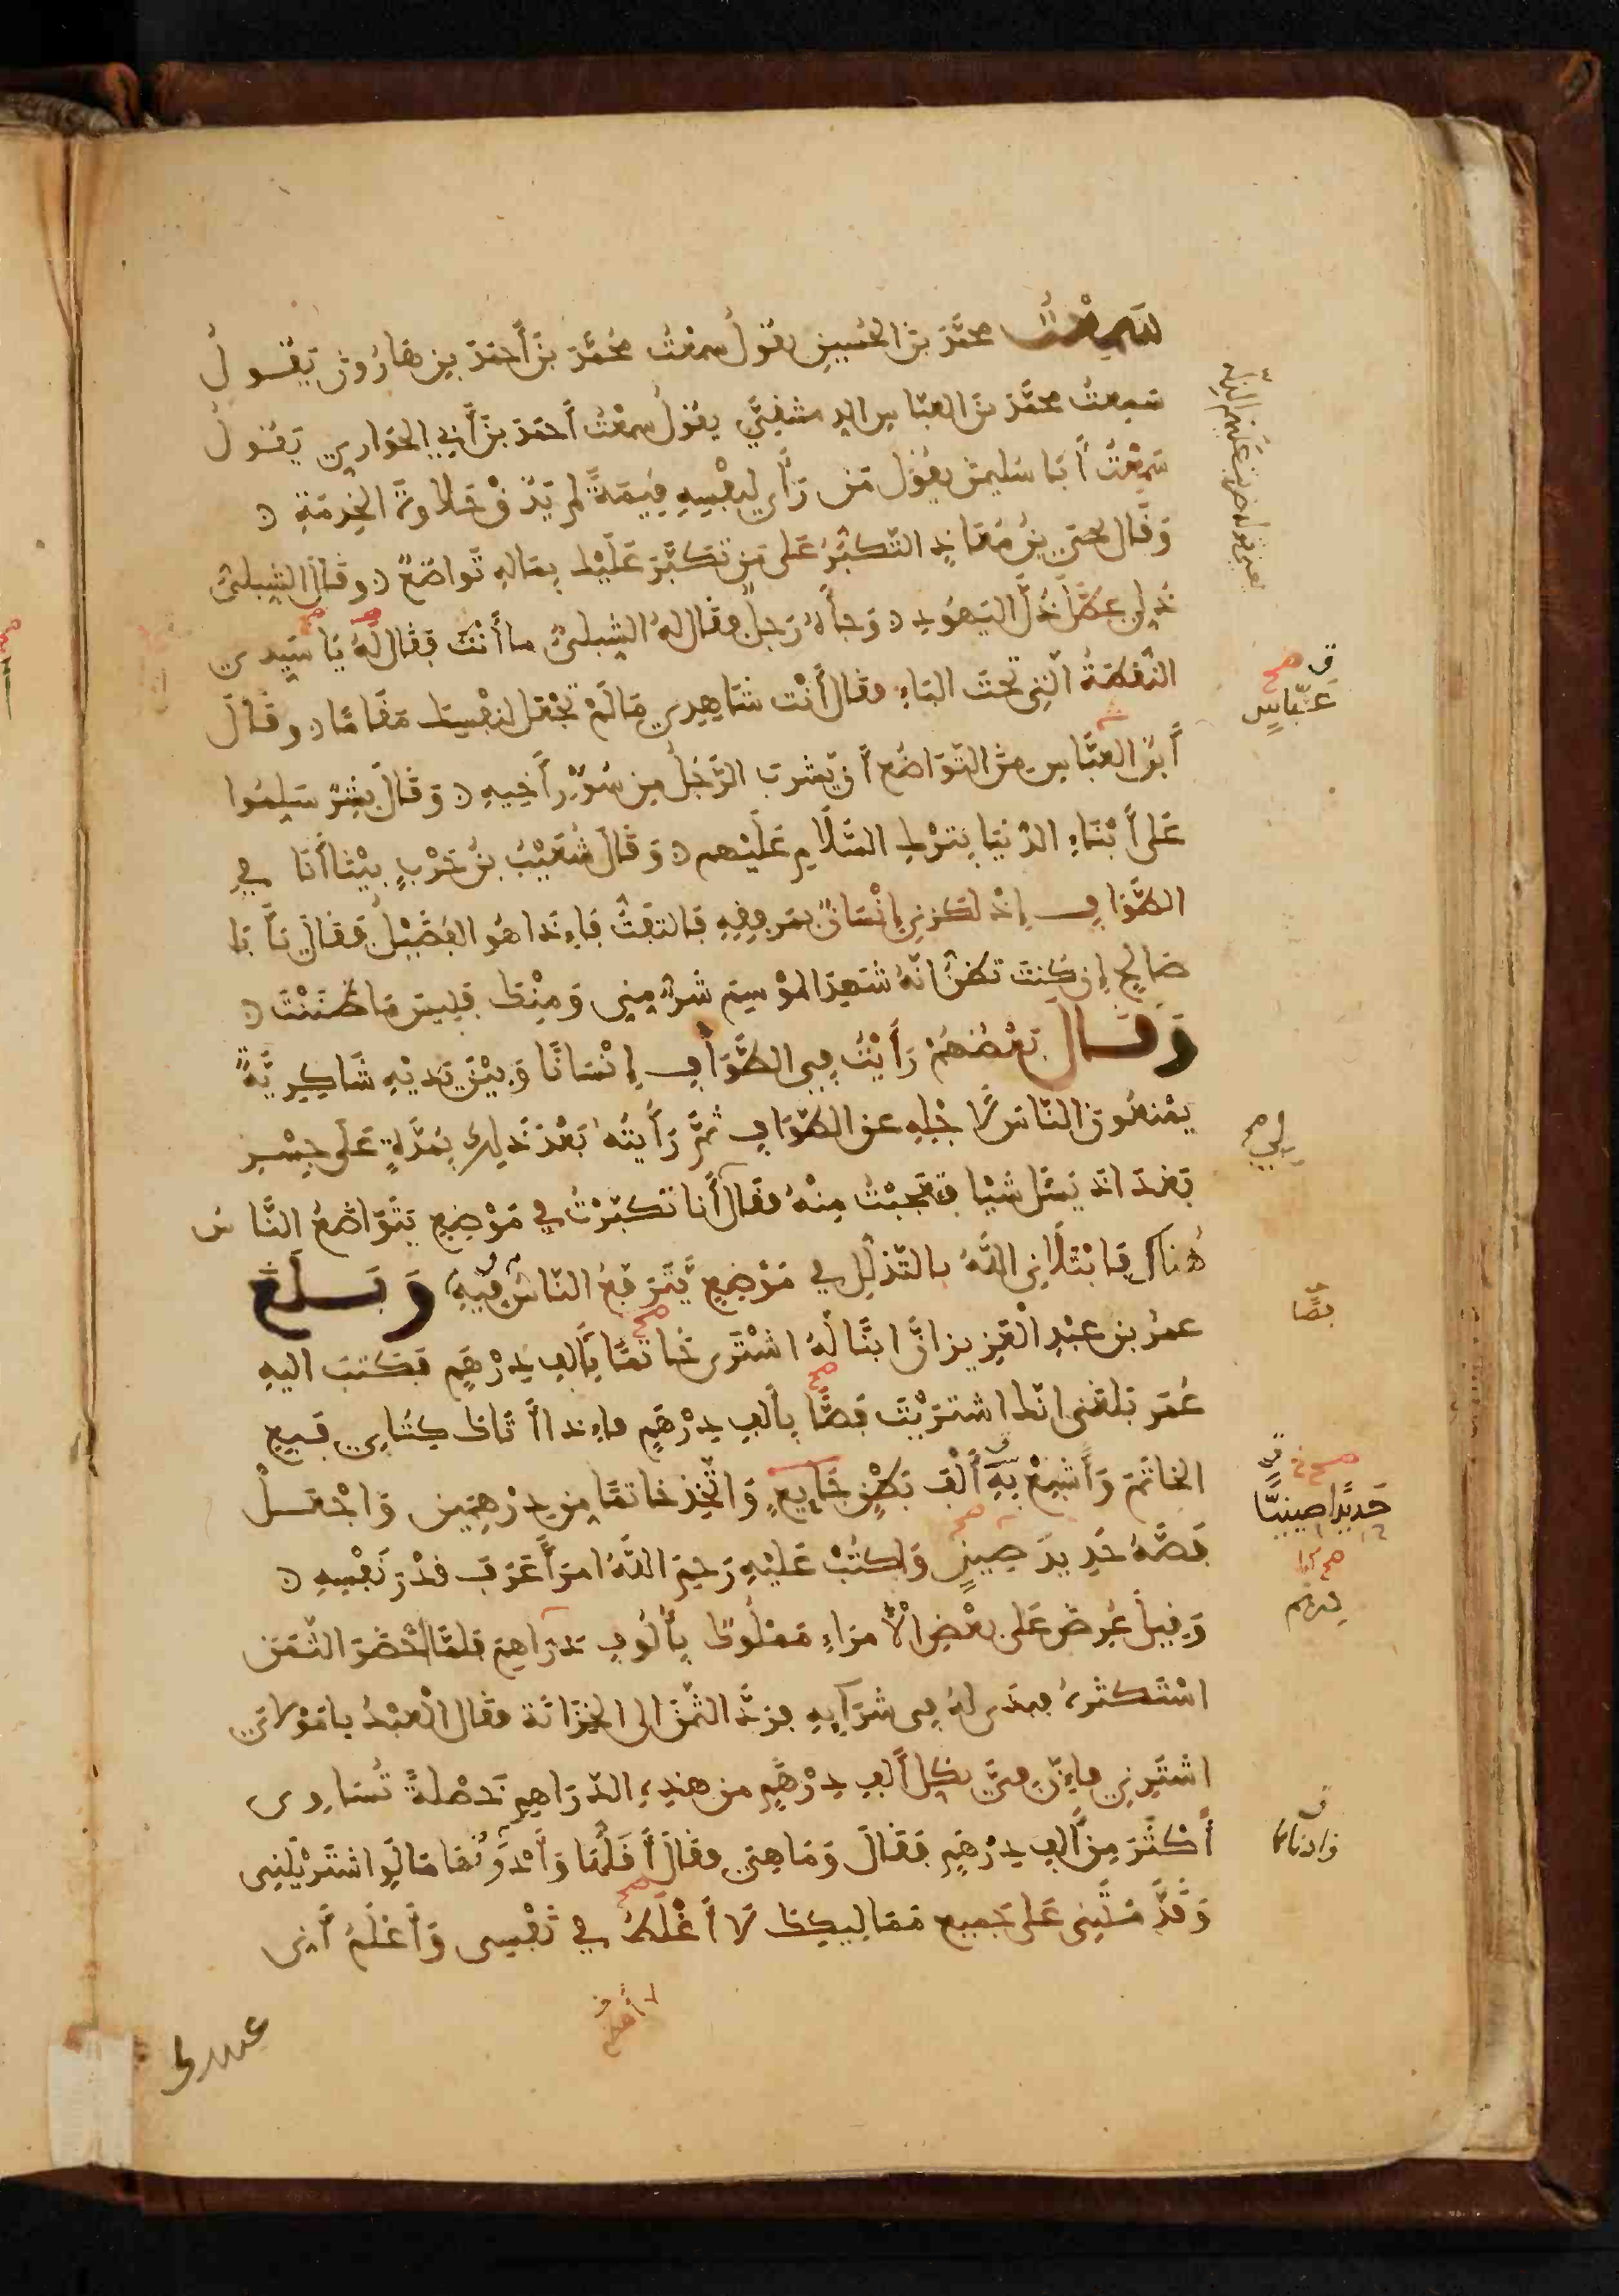 سَمِعْتُ محمَّدَ بنَ الحُسَينِ يقولُ سمعْتُ مُحَمَّدَ بنَ أَحمَدَ بنِ هَارُونَ يَقُولُ
سَمِعتُ محمَّدَ بنَ العبَّاسِ الدِّمَشْقِيَّ يقولُ سمعْتُ أَحمَدَ بنَ أَبِي الحَوَارِي يَقُولُ
سَمِعْتُ أَبَا سُليمنَ يقُولُ مَن رَأَى لِنَفْسِهِ قِيمَةً لم يَذُقْ حَلَاوَةَ الخِدمَةِ
وَقَالَ يحيَى بنُ مُعَاذٍ التَّكَبُّرُ عَلَى مَن تَكَبَّرَ عَلَيْكَ بِمَالِهِ تَوَاضُعٌ وقَالَ الشِّبلىُّ
ذُلِّي عطَّلَ ذُلَّ اليَهُودِ وَجاءَهُ رَجلٌ فقَال لهُ الشِّبلىُّ ما أَنْتَ فقَالَ لَهُ يَا سَيِّدى
النُّقطَةُ الَّتِى تحتَ البَاءِ فقَال أَنْت شَاهِدِي مَا لَمْ تَجْعَل لنفْسِكَ مَقَامًا وقَالَ
أَبُو العَبَّاسِ مِنَ التَّوَاضُعِ أَن يَشْربَ الرَّجُلُ مِن سُؤْرِ أَخِيهِ وَقَالَ بِشْرٌ سَلِّمُوا
عَلى أَبْنَاءِ الدُّنيَا بِتَرْكِ السَّلَامِ عَلَيْهم وَقَالَ شُعَيْبُ بنُ حَرْبٍ بيْنَا أَنَا في
الطَّوَافِ إِذْ لكَزَنِى إِنْسَانٌ بمَرفِقِهِ فَالتَفَتُّ فَإِذَا هُوَ الفُضَيْلُ فَقَالَ يَا بَا
صَالِحٍ إِن كُنتَ تَظُنُّ انَّهُ شَهِدَ المَوْسِمَ شَرٌّ مِنِّى وَمِنْكَ فَبِيسَ مَا ظَنَنْتَ
وَقَالَ بَعْضُهُمْ رَأَيْتُ فِى الطَّوَافِ إِنْسَانًا وَبيْنَ يَدَيْهِ شَاكِرِيَّةٌ
يمْنعُونَ النَّاسَ لأَجْلِهِ عن الطَّوَافِ ثمَّ رَأَيتُهُ بَعْدَ ذَلِكَ بِمُدَّةٍ عَلَى جِسْرِ
بَغْدَاد يَسْئَل شَيْا فتعجَّبْتُ مِنْهُ فقَال أَنا تَكَبَّرْتُ في مَوْضِعٍ يَتَوَاضَعُ النَّاسُ
هُنَاكَ فَابْتَلَانِى اللَّهُ بالتَّذَلُّلِ في مَوْضِعٍ يَتَرَفَّعُ النَّاسُ فِيهِ وَبَلَغَ
عمرَ بن عَبْدِ الْعَزِيز انَّ ابنًا لَهُ اشْتَرى خَاتَمًا بِأَلفِ دِرْهَمٍ فَكَتبَ اليهِ
عُمَر بَلَغَنى انّكَ اشتَرَيْتَ فَصًّا بِأَلفِ دِرْهَمٍ فإِذا أَتَاكَ كِتَابِى فَبِع
الخَاتَمَ وَأَشبِعْ بِهِ أَلْفَ بَطْنٍ جَايِعٍ وَاتَّخِذ خَاتمًا مِن دِرْهَمَيْنِ وَاجْعَلْ
فَصَّهُ حَدِيدَ صِينٍ وَاكتُبْ عَلَيْهِ رَحِمَ اللَّهُ امرَأً عَرَفَ قدْرَ نَفْسِهِ
وَقِيلَ عُرِضَ عَلى بعْضِ الأُمَرَاءِ مَمْلُوكٌ بِأُلُوفِ دَرَاهِمَ فلمَّا أَحْضَرَ الثَّمَنَ
اسْتَكثَرَهُ فبَدَى لهُ فى شِرَايِهِ فرَدَّ الثَّمَنَ الى الخِزَانَة فقَال العَبْدُ يا مَوْلَاىَ
اشتَرِنِى فإِنَّ فِيَّ بكُلِّ أَلفِ دِرْهَمٍ من هذِهِ الدَّرَاهِمِ خَصْلَةً تُسَاوِى
أَكْثَرَ مِن أَلفِ دِرْهَمٍ فَقَالَ وَمَا هِيَ فقَالَ أَقَلُّهَا وَأَدْوَنُهَا مَا لَوِ اشتَرَيْتَنِى
وَقَدَّمْتَنِى عَلى جَمِيعِ مَمَالِيكِكَ لَا أَغْلَطُ في نَفْسِى وَأَعْلَمُ أَنِّى
عبدك
عَبَّاسٍ
فصًّا
حَدِيدًا صِينِيًّا
درهم
وادناها